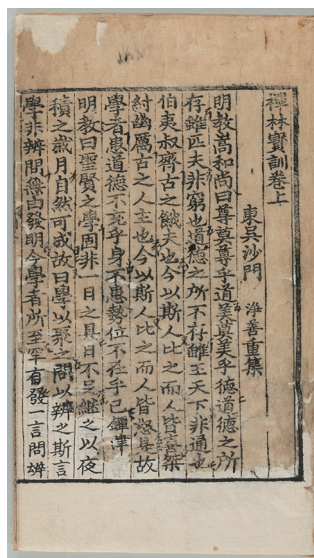 禪林寶訓卷上
東吳沙門 淨善重集
明教嵩和尚曰尊莫尊乎道美莫美乎德道德之所
存雖匹夫非窮也道德之所不存雖王天下非通也
伯夷叔齊古之餓夫也今以斯人比之而人皆喜桀
紂幽厲古之人主也今以斯人比之而人皆怒是故
學者患道德不充乎身不患勢位不在乎己鐔津
明教曰聖賢之學固非一日之具日不足繼之以夜
積之歲月自然可成故曰學以聚之問以辨之斯言
學非辨問無由發明今學者所至罕有發一言問辨